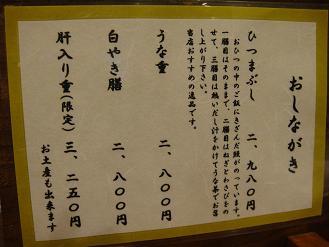 おしながき
ひつまぶし 二、九八〇円
おひつの中のご飯にきざんだ鰻がのっています。
一膳目はそのままで、二膳目はねぎとわさびをの
せて、三膳目は熱いだし汁をかけてうな茶でお召
し上がり下さい。
当店おすすめの逸品です。
うな重 二、八〇〇円
白やき膳 二、八〇〇円
肝入り重(限定) 三、二五〇円
お土産も出来ます